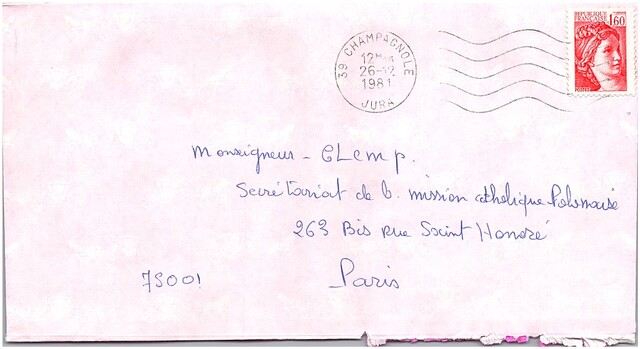 RÉPUBLIQUE
FRANÇAISE
1,60
POSTES
39 CHAMPAGNOLE
12H
26-12
1981
JURA
Monseigneur - CLcmp.
Secrétariat de la mission catholique Polonaise
263 Bis rue Saint Honoré
75001 Paris